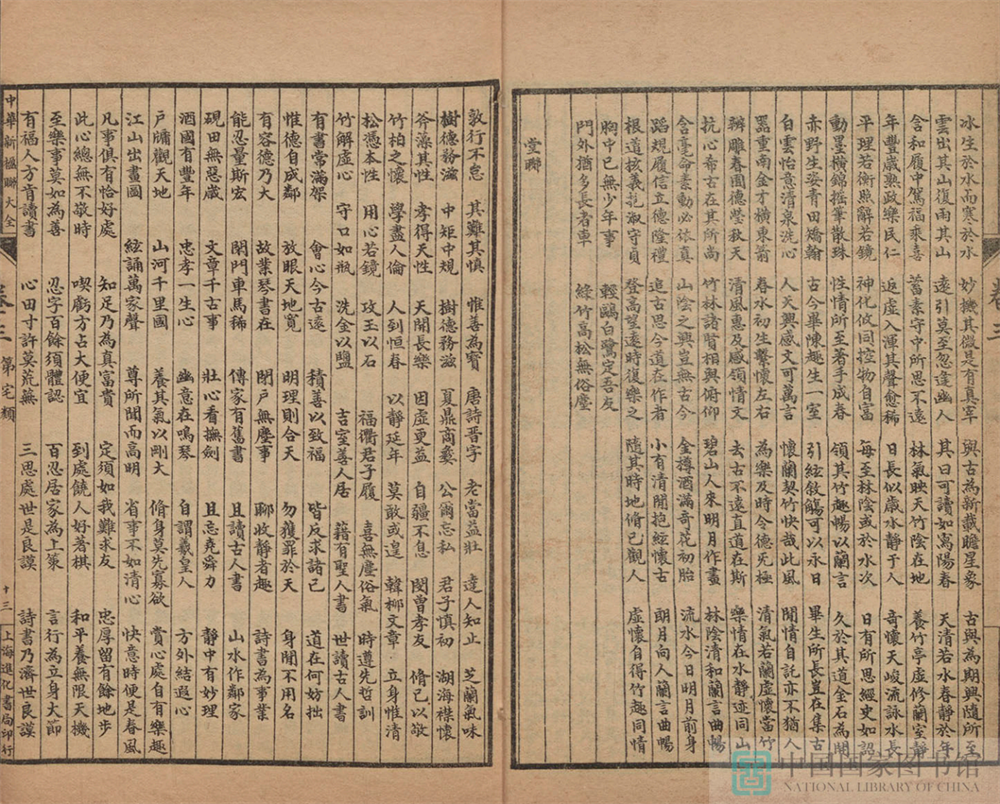 冰生於水而寒於水 妙機其微是有真宰 與古為新載瞻星象 古興為期興隨所至
雲出其山復雨其山 遠引莫至忽逢幽人 其日可讀如寓陽春 天清若水春靜於年
含和履中駕福乘喜 蓄素守中所思不遠 林氣映天竹陰在地 養竹亭虛修蘭室靜
年豐歲熟政樂民仁 返虛入渾其聲愈稀 日長似歲水靜于人 奇懷天峻流詠水長
平理若衡照辭若鏡 神化攸同控物自富 每至林陰或於水次 日有所思經史如詔
動墨橫錦搖筆散珠 性情所至著手成春 領其竹趣暢以蘭言 久於其道金石為開
赤野生姿青田矯翰 古今畢陳趣生一室 引絃敘觴可以永日 畢生所長豈在集古
白雲怡意清泉洗心 人天興感文可萬言 懷蘭契竹快哉此風 閒情自託亦不猶人
器重南金才橫東箭 春水初生繫懷左右 為樂及時令德旡極 清氣若蘭虛懷當竹
辦雕春圃德瑩秋天 清風惠及感領情文 去古不遠直道在斯 樂情在水靜迹同山
抗心希古在其所尚 竹林諸賢相與俯仰 碧山人來明月作畫 林陰清和蘭言曲暢
含毫命素動必依真 山陰之興豈無古今 金樽酒滿奇花初胎 流水今日明月前身
蹈規履信立德隆禮 追古思今道在作者 小有清閒抱絃懷古 朗月向人蘭言曲暢
根道核義抱淑守貞 登高望遠時復樂之 隨其時地脩己觀人 虛懷自得竹趣同情
胸中已無少年事 輕鷗白鷺定吾友
門外猶多長者車 綠竹高松無俗塵
堂聯
敦行不怠 其難其慎 惟善為寶 唐詩晋字 老當益壯 達人知止 芝蘭氣味
樹德務滋 中矩中規 樹德務滋 夏鼎商彝 公爾忘私 君子慎初 湖海襟懷
斧藻其性 孝得天性 天開長樂 因虛更益 自彊不息 閔曾孝友 脩己以敬
竹柏之懷 學盡人倫 人到恒春 以靜延年 莫敢或遑 韓柳文章 立身惟清
松憑本性 用心若鏡 攻玉以石 福衢君子履 喜無塵俗氣 時遵先哲訓
竹解虛心 守口如瓶 洗金以鹽 吉室善人居 藉有聖人書 世讀古人書
有書常滿架 會心今古遠 積善以致福 皆反求諸己 道在何妨拙
惟德自成鄰 放眼天地寬 明理則合天 勿獲罪於天 身閒不用名
有容德乃大 故業琴書在 閉戶無塵事 聊收靜者趣 詩書為事業
能忍量斯宏 閑門車馬稀 傳家有舊書 且讀古人書 山水作鄰家
硯田無惡歲 文章千古事 壯心看撫劍 且忘堯舜力 靜中有妙理
酒國有豐年 忠孝一生心 幽意在鳴琴 自謂羲皇人 方外結遐心
戶牖觀天地 山河千里國 養其氣以剛大 脩身莫先寡欲 賞心處自有樂趣
江山出畫圖 絃誦萬家聲 尊所聞而高明 省事不如清心 快意時便是春風
凡事俱有恰好處 知足乃為真富貴 定須如我難求友 忠厚留有餘地步
此心總無不敬時 喫虧方占大便宜 到處饒人好著棋 和平養無限天機
至樂事莫如為善 忍字百餘須體認 百忍居家為上策 言行為立身大節
有福人方肯讀書 心田寸許莫荒蕪 三思處世是良謀 詩書乃濟世良謨
中華新楹聯大全 卷三 第宅類 十三 上海進化書局印行
卷三
中国国家图书馆
NATIONAL LIBRARY OF CHINA